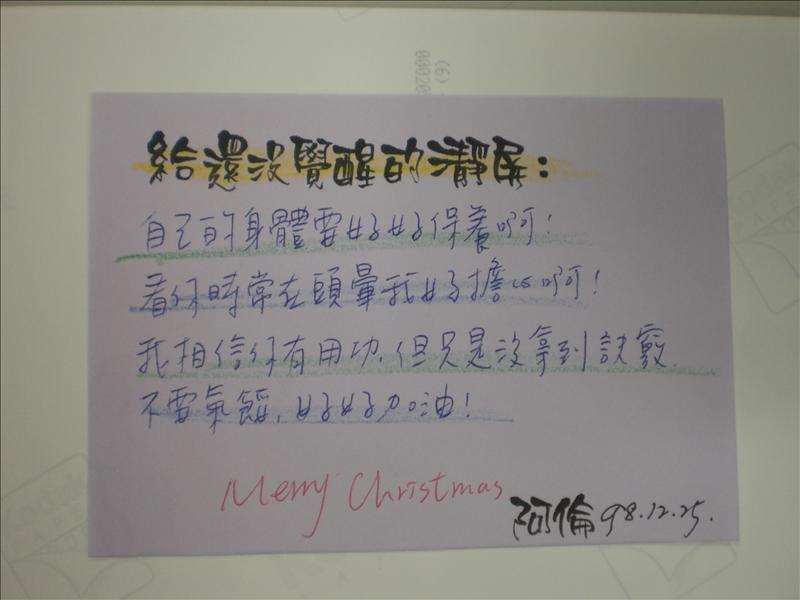 (6)
給還沒覺醒的瀞屏:
自己的身體要好好保養啊!
看你時常在頭暈我好擔心啊!
我相信你有用功,但只是沒拿到訣竅.
不要氣餒,好好加油!
Merry Christmas
阿倫 98.12.25.